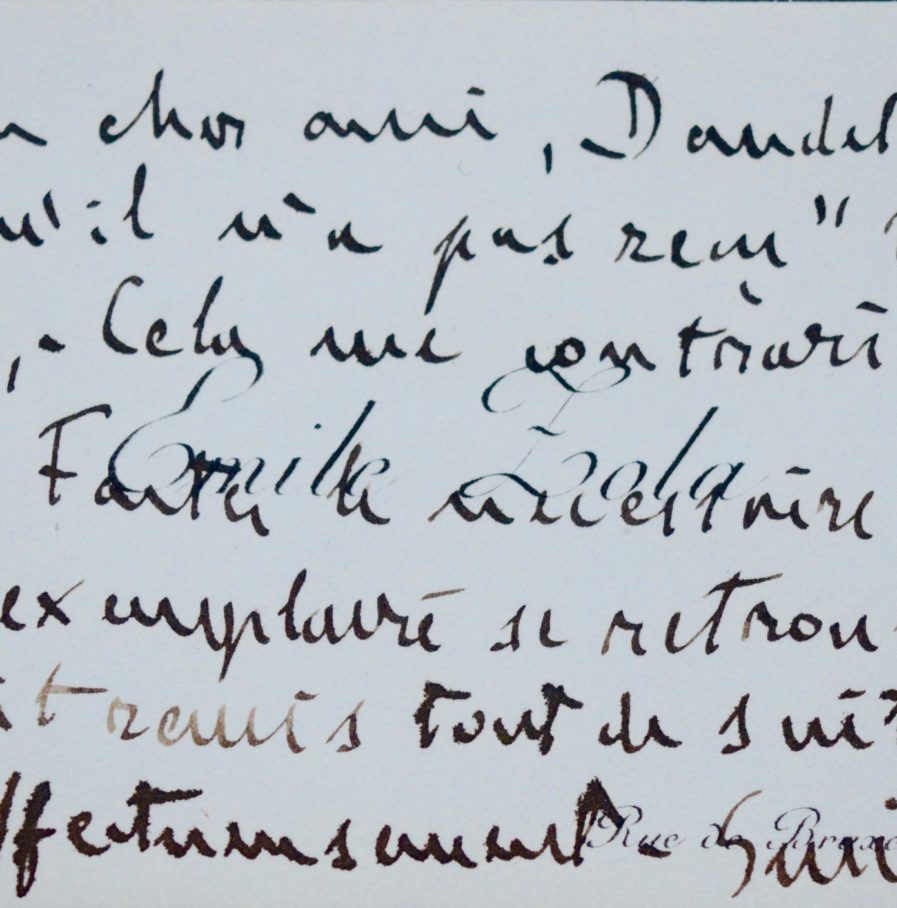 n cher ami, Daudet
u'il n'a pas reçu"
, - Cela me contrarie
Emile Zola
Faites le nécessaire
exemplaire se retrou
it remis tout de suit
ffectueusement -
Rue de Bruxe